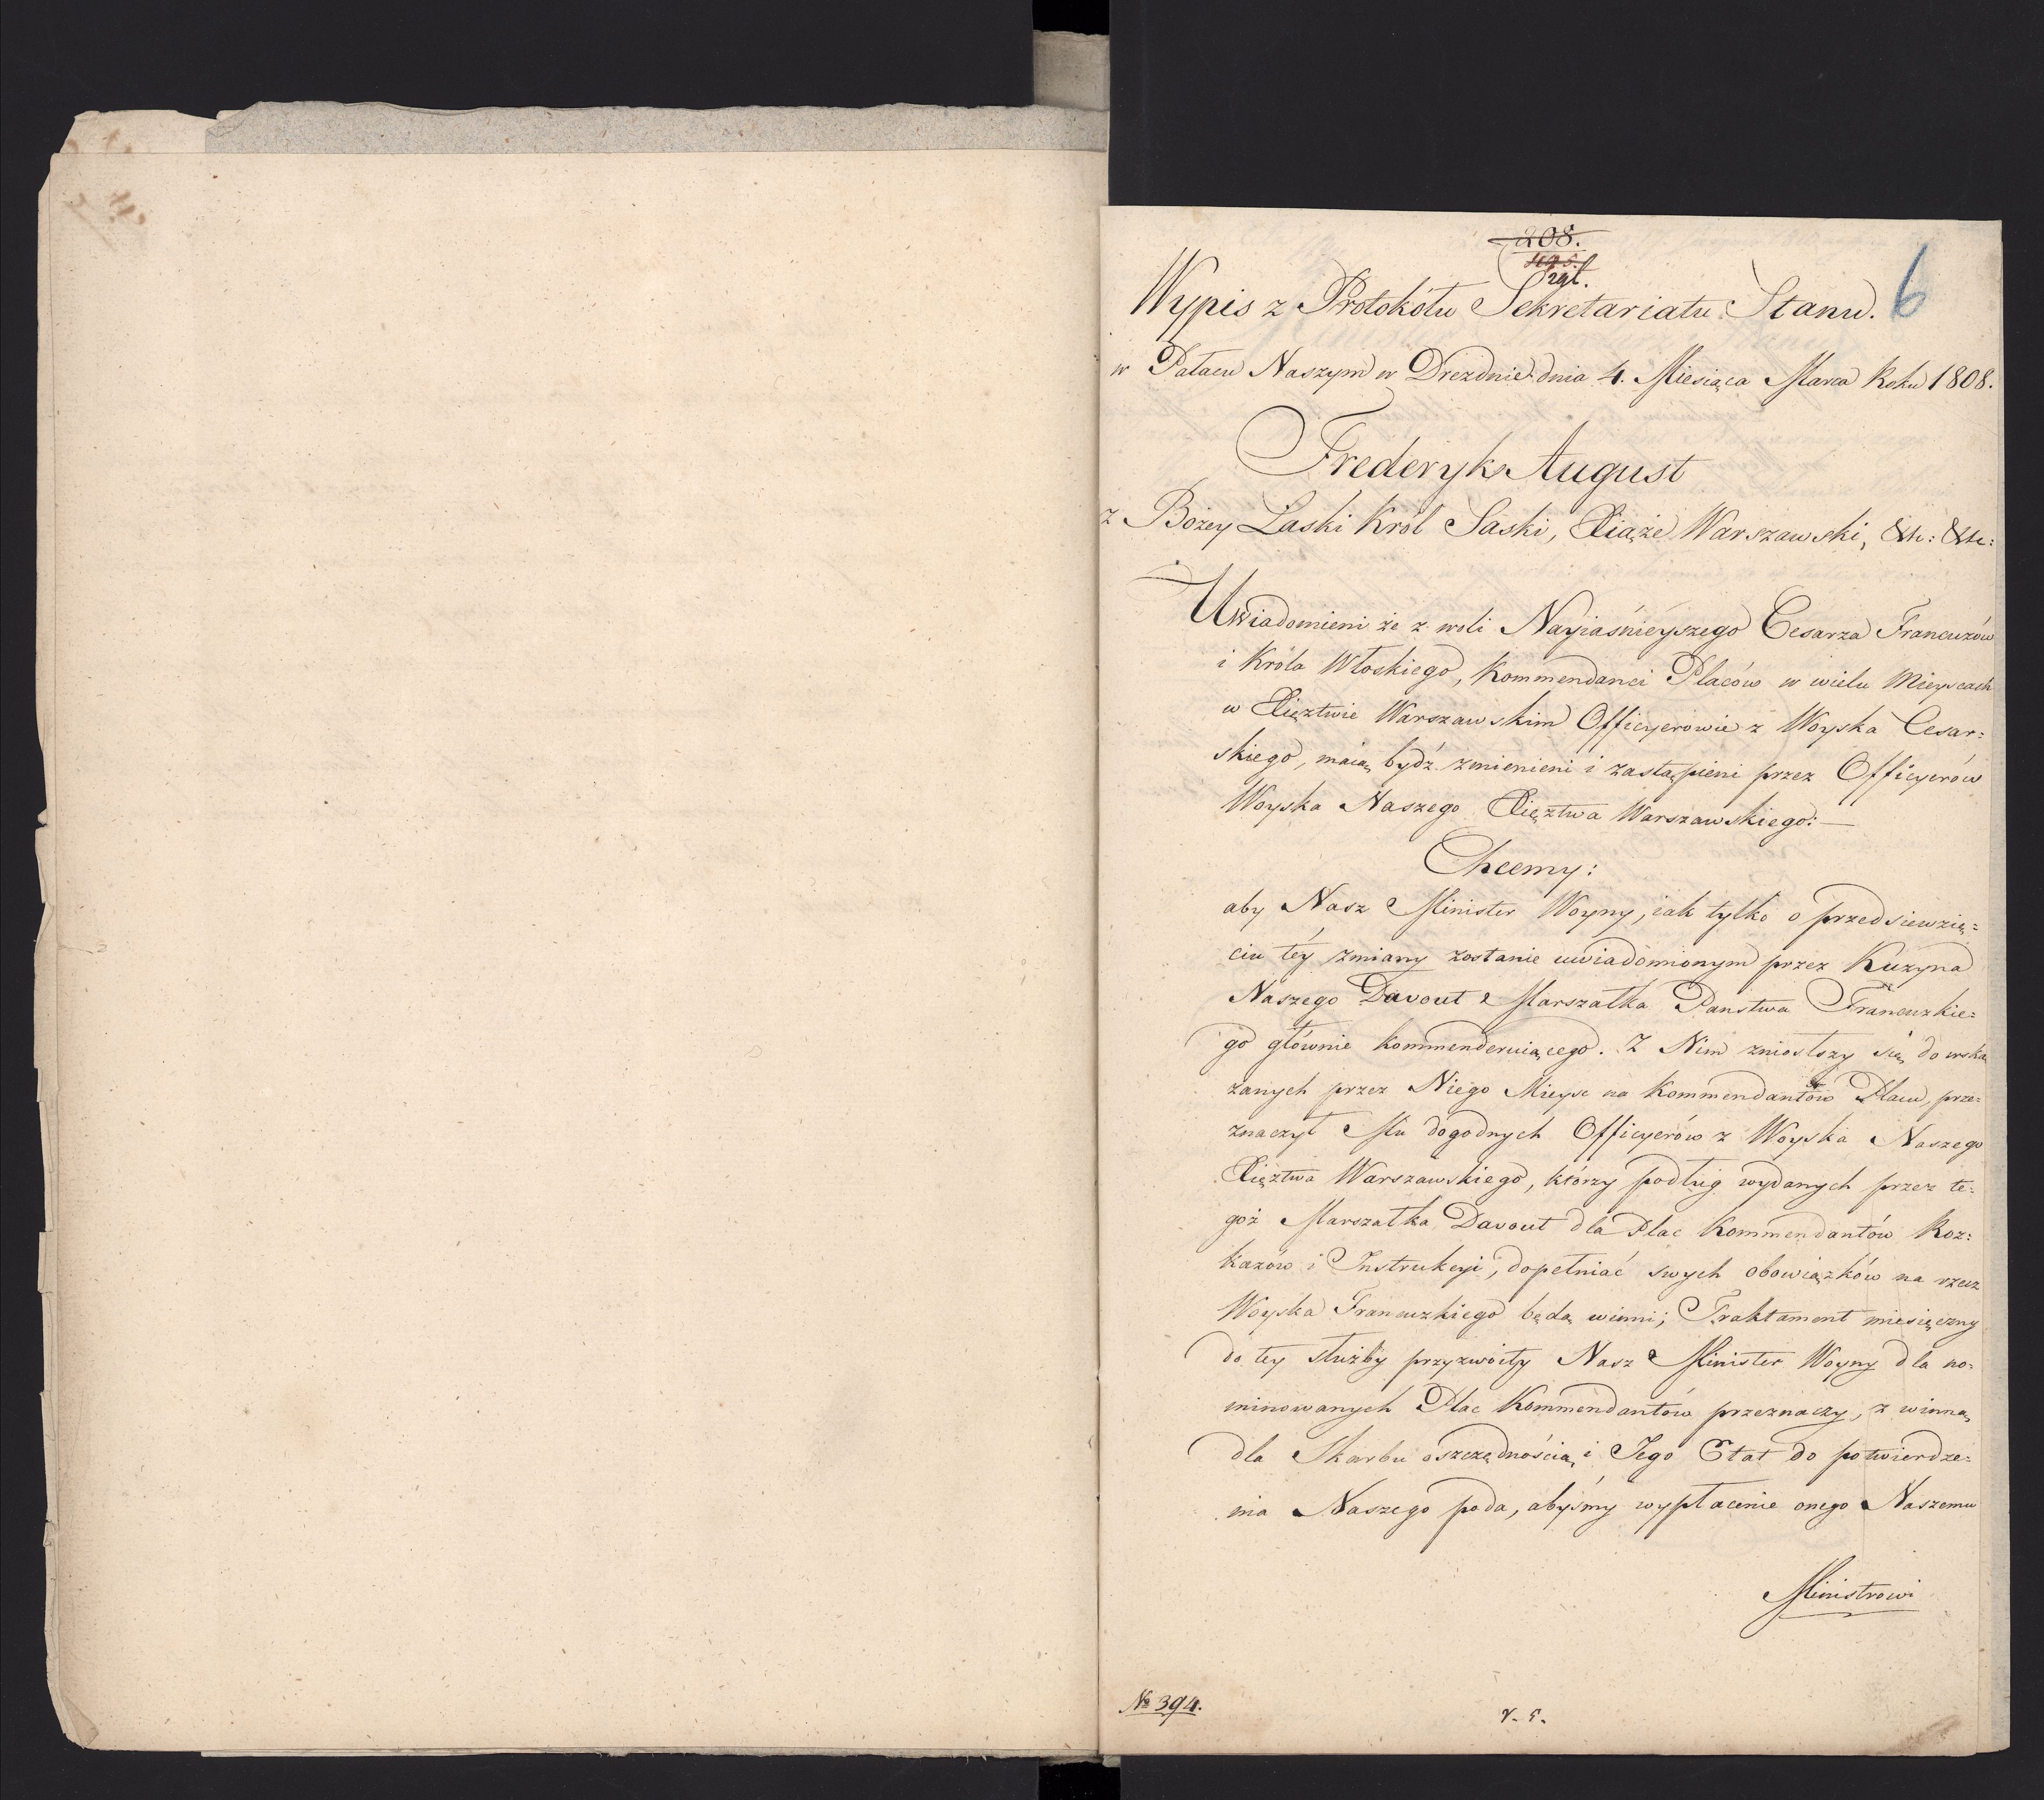 208.
291.
6
Wypis z Protokółu Sekretariatu Stanu.
w Pałacu Naszym w Dreźdnie dnia 4. Miesiąca Marca Roku 1808.
Frederyk August
z Bożey Łaski Król Saski, Xiąże Warszawski, &tc: &tc:
Uwiadomieni że z woli Nayiaśnieyszego Cesarza Francuzów
i Króla Włoskiego, Kommendanci Placów w wielu Mieyscach
w Xięztwie Warszawskim Officyerowie z Woyska Cesar=
skiego, maią bydź zmienieni i zastąpieni przez Officyerów
Woyska Naszego Xięztwa Warszawskiego:—
Chcemy:
aby Nasz Minister Woyny, iak tylko o przedsiewzię=
ciu téy zmiany zostanie uwiadomionym przez Kuzyna
Naszego Davout Marszałka Panstwa Francuzkie=
go głównie kommenderuiącego. Z Nim zniosłszy się, do wska
zanych przez Niego Mieysc na Kommendantów Placu, prze=
znaczył Mu dogodnych Officyerów z Woyska Naszego
Xięztwa Warszawskiego, którzy podług wydanych przez te=
goż Marszałka Davout dla Plac Kommendantów Roz=
kazów i Instrukcyi, dopełniać swych obowiązków na rzecz
Woyska Francuzkiego będą winni; Traktament miesięczny
do tey służby przyzwoity Nasz Minister Woyny dla no=
minowanych Plac Kommendantów przeznaczy, z winną
dla Skarbu oszczędnością, i Jego Etat do potwierdze=
nia Naszego poda, abyśmy wypłacenie onego Naszemu
Ministrowi
No 394.